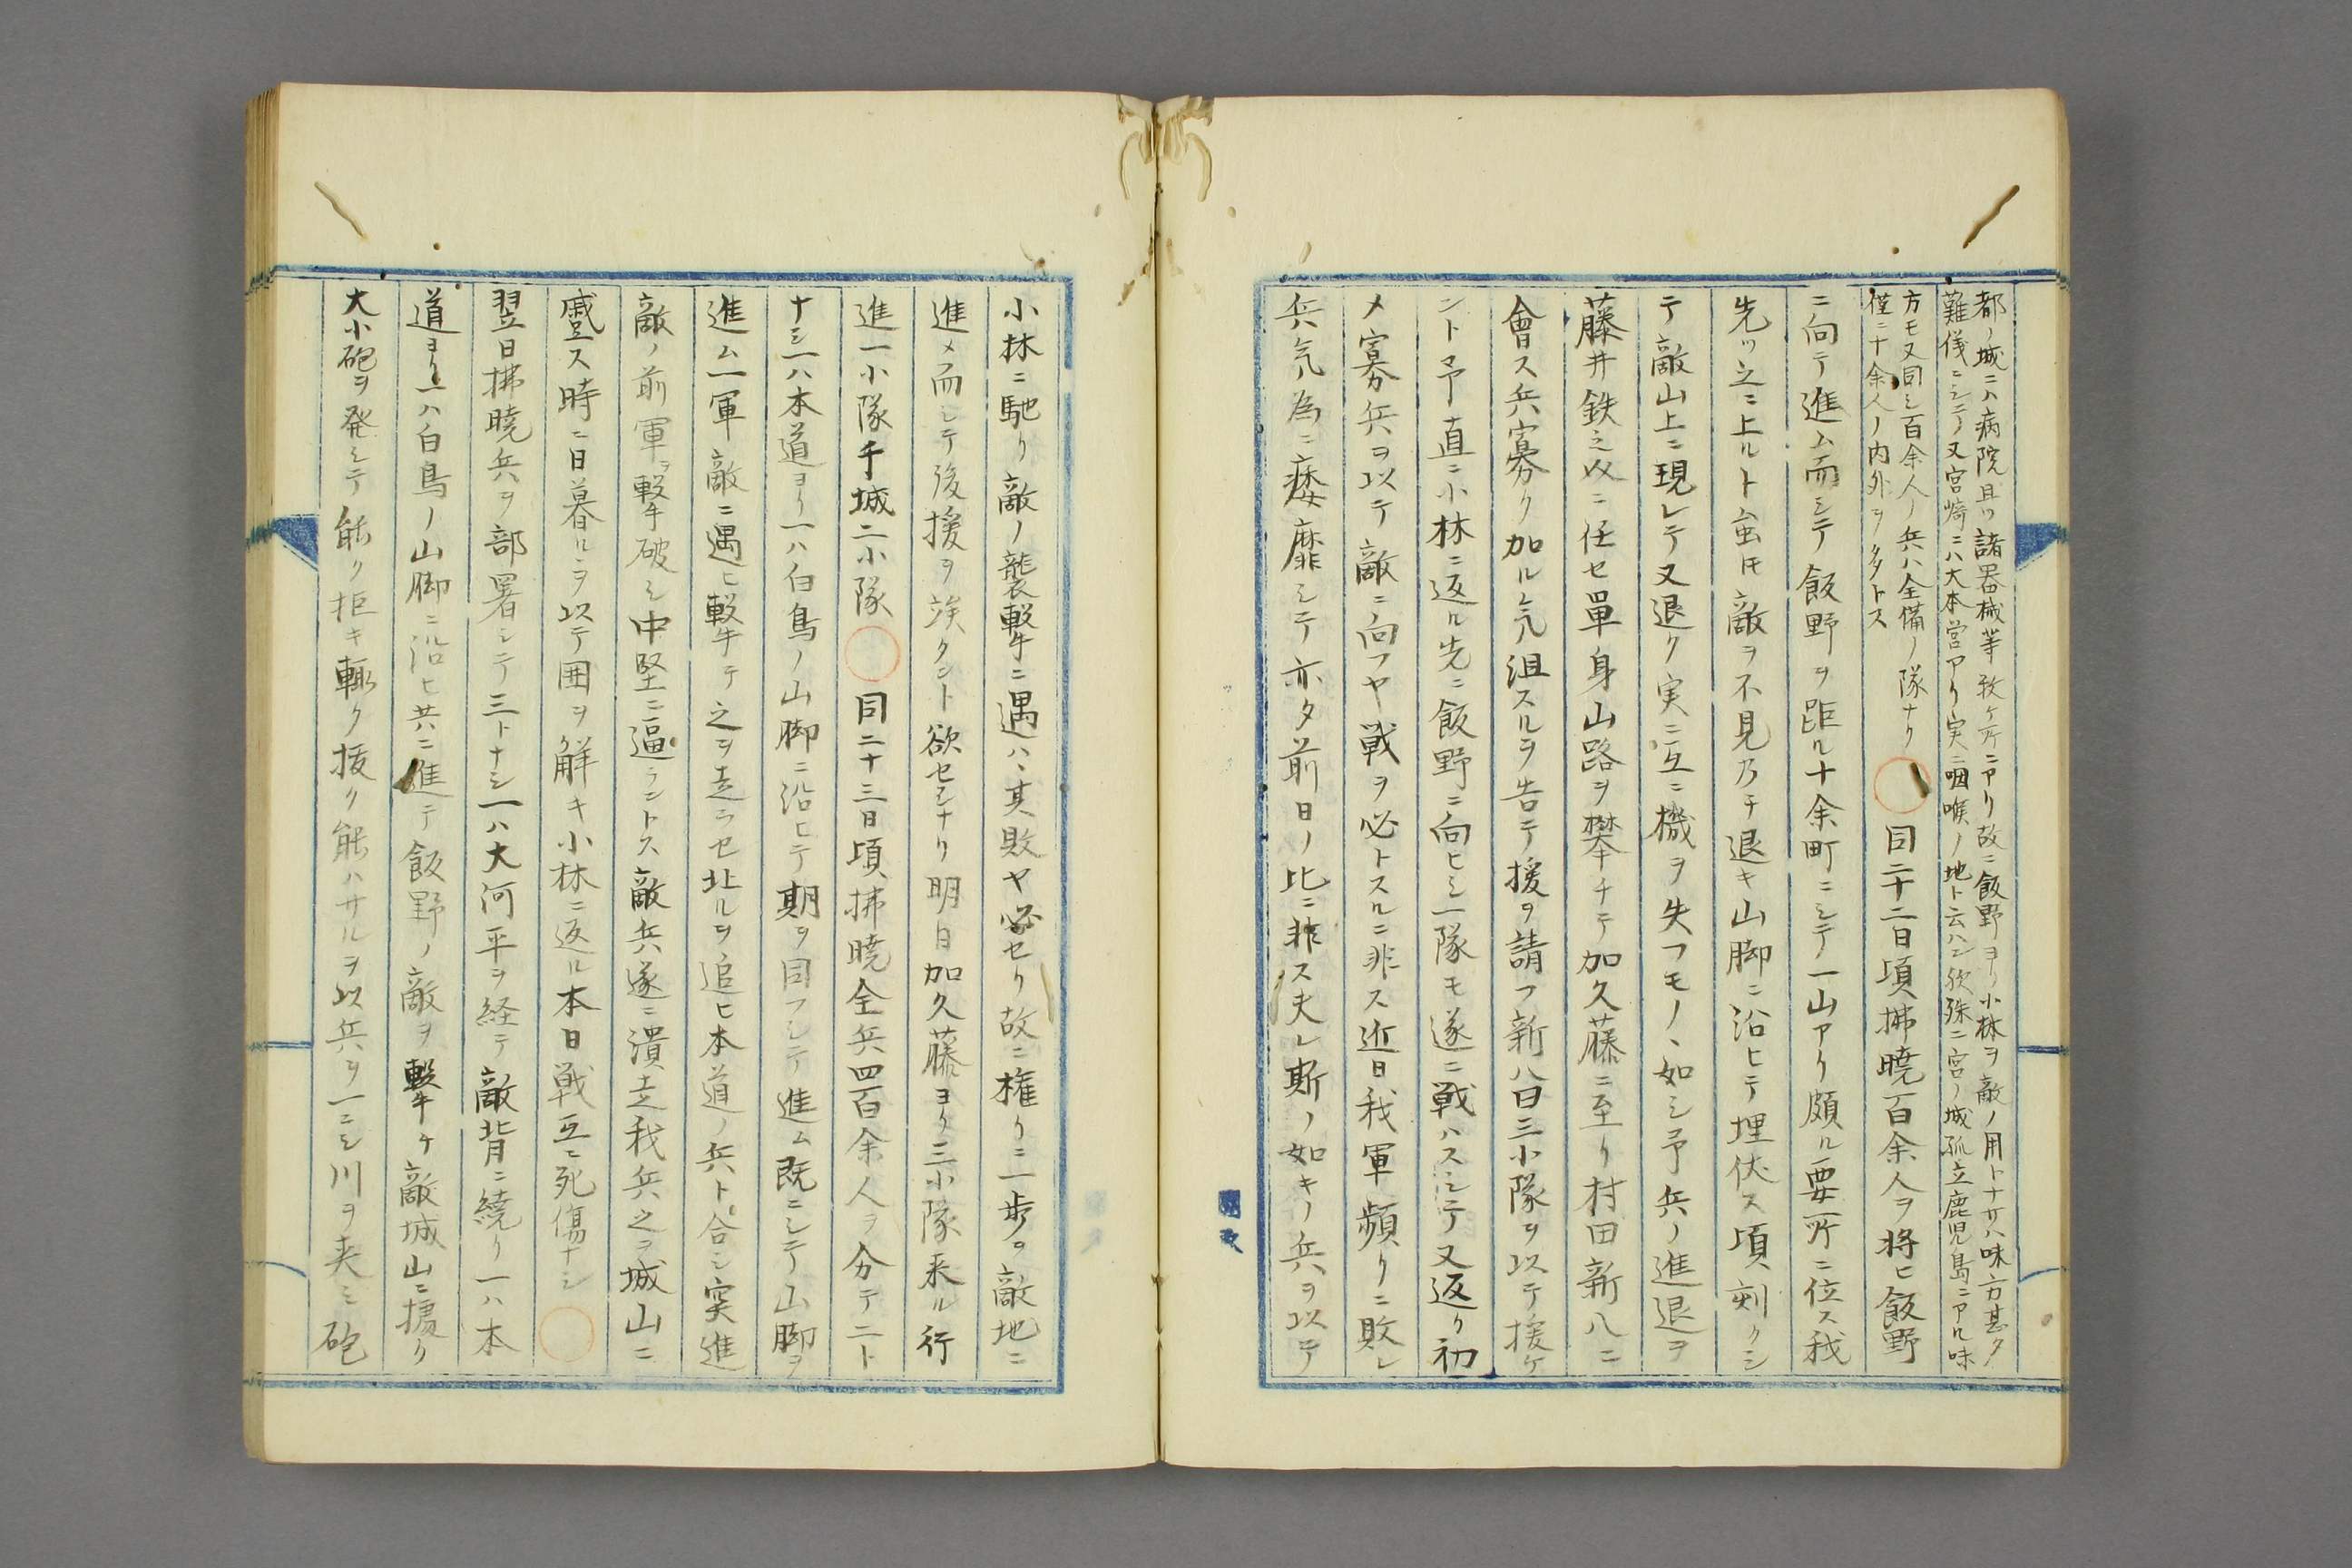 都ノ城ニハ病院且ツ諸器械等孜ケ所ニアリ故ニ飯野ヨリ小林ヲ敵ノ用トナサハ味方甚タ
難儀ニシテ又宮崎ニハ大本営アリ実ニ咽喉ノ地ト云ハン欤殊ニ宮ノ城孤立鹿児島ニアル味
方モ又同シ百余人ノ兵ハ全備ノ隊ナリ
僅ニ十余人ノ内外ヲ多トス
○同二十二日頃拂暁百余人ヲ将ヒ飯野
ニ向テ進ム而シテ飯野ヲ距ル十余町ニシテ一山アリ頗ル要所ニ位ス我
先ツ之ニ上ルト虽モ敵ヲ不見乃チ退キ山脚ニ沿ヒテ埋伏ス頃刻クシ
テ敵山上ニ現レテ又退ク実ニ互ニ機ヲ失フモノヽ如シ予兵ノ進退ヲ
藤井鉄之丞ニ任セ單身山路ヲ攀チテ加久藤ニ至リ村田新八ニ
會ス兵寡ク加ルニ気沮スルヲ告テ援ヲ請フ新八曰三小隊ヲ以テ援ケ
ント予直ニ小林ニ返ル先ニ飯野ニ向ヒシ一隊モ遂ニ戦ハスシテ又返リ初
メ寡兵ヲ以テ敵ニ向フヤ戦ヲ必トスルニ非ス近日我軍頻リニ敗レ
兵気為ニ痿靡シテ亦タ前日ノ比ニ非ス夫レ斯ノ如キノ兵ヲ以テ
小林ニ馳リ敵ノ襲撃ニ遇ハヽ其敗ヤ必セリ故ニ権リニ一歩ヲ敵地ニ
進メ而シテ後援ヲ竢タント欲セシナリ明日加久藤ヨリ三小隊来ル行
進一小隊千城二小隊○同二十三日頃拂暁全兵四百余人ヲ分テ二ト
ナシ一ハ本道ヨリ一ハ白鳥ノ山脚ニ沿ヒテ期ヲ同フシテ進ム既ニシテ山脚ヲ
進ム一軍敵ニ遇ヒ撃テ之ヲ走ラセ北ルヲ追ヒ本道ノ兵ト合シ突進
敵ノ前軍ヲ撃破シ中堅ニ逼ラントス敵兵遂ニ潰走我兵之ヲ城山ニ
蹙ス時ニ日暮ルヲ以テ囲ヲ解キ小林ニ返ル本日戦互ニ死傷ナシ○
翌日拂暁兵ヲ部署シテ三トナシ一ハ大河平ヲ経テ敵背ニ繞リ一ハ本
道ヨリ一ハ白鳥ノ山脚ニ沿ヒ共ニ進テ飯野ノ敵ヲ撃ケ敵城山ニ據リ
大小砲ヲ発シテ能ク拒キ輙ク抜ク能ハサルヲ以兵ヲ一ニシ川ヲ夹ミ砲